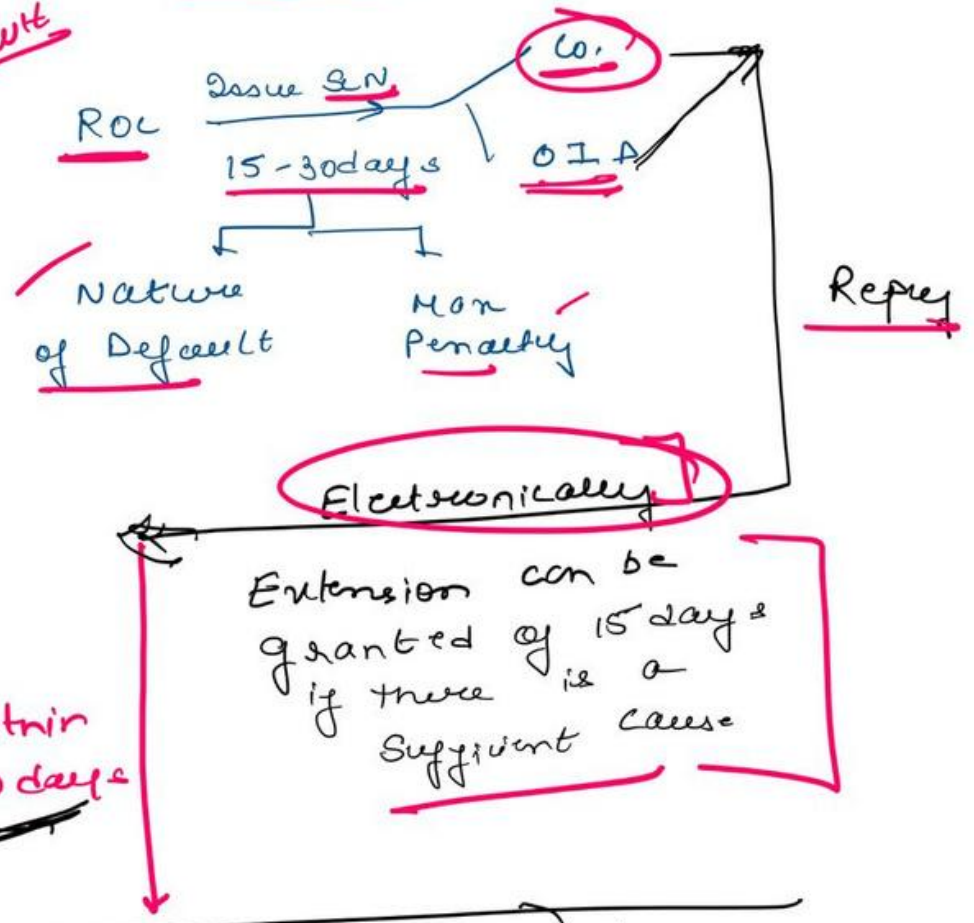 Co.
Issue SCN
ROC
15-30days
OID
Nature
of Default
Max
Penalty
Reply
Electronically
Extension can be
granted of 15 days
if there is a
sufficient cause
days